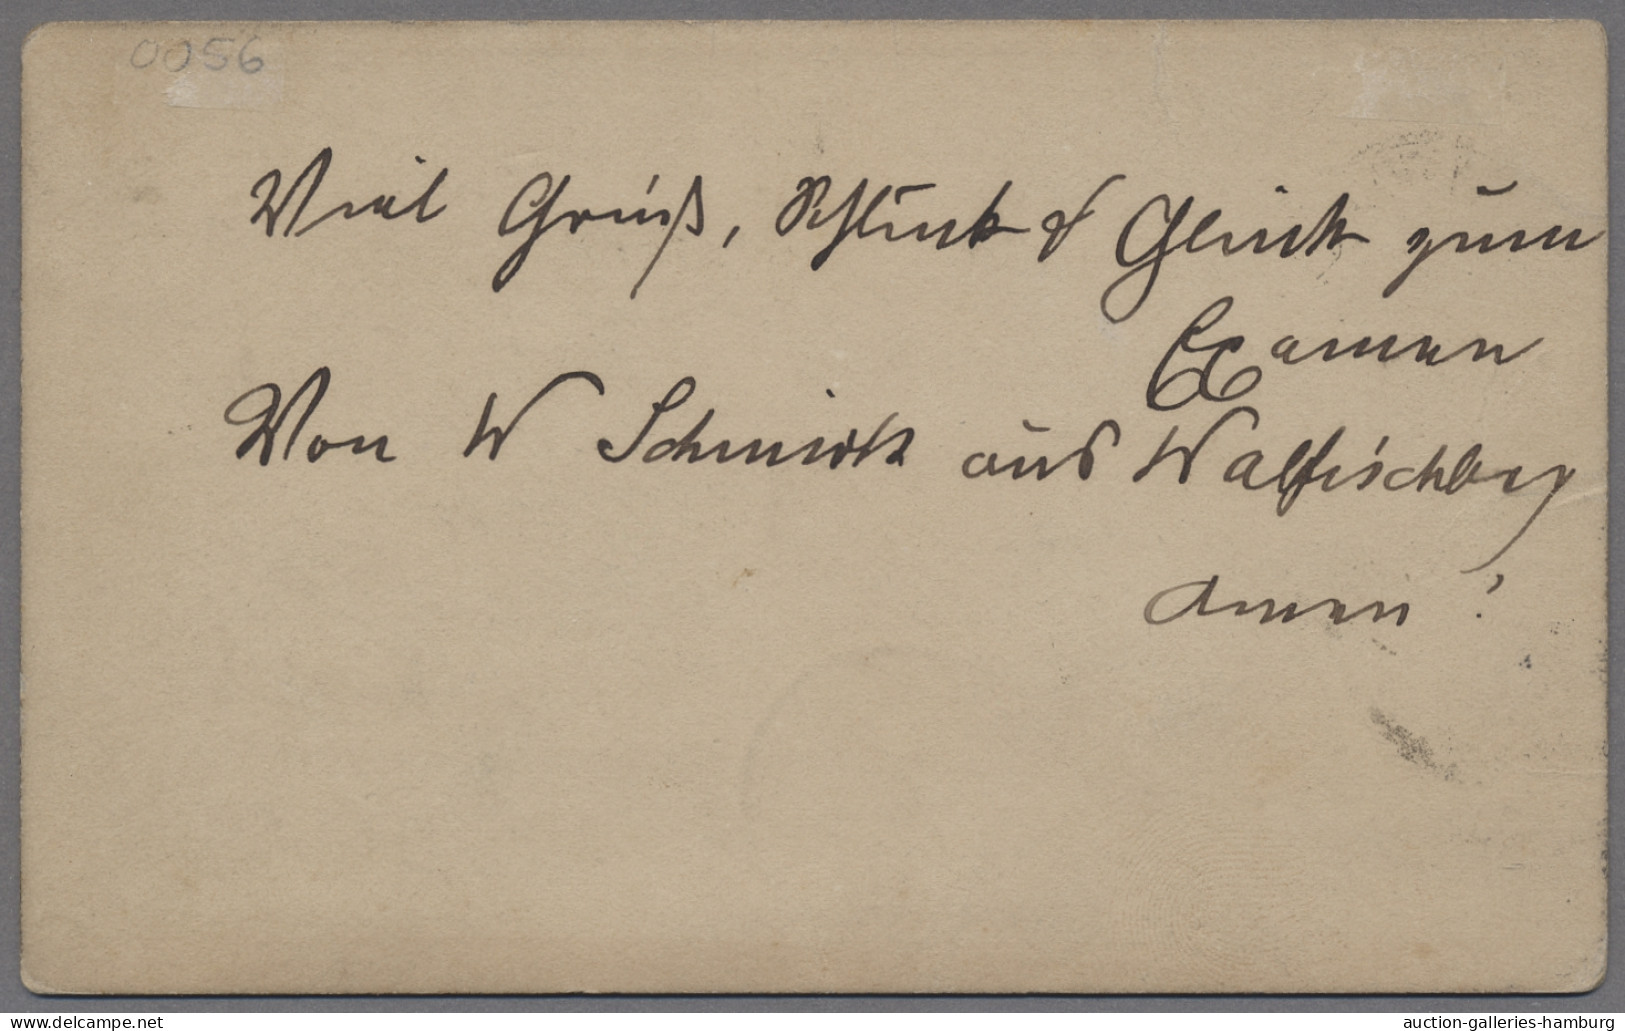 0056
Viel Grüß, Schluck & Glück zum
Examen
Von W Schmidt aus Walfischbay
Amen!
delcampe.net
auction-galleries-hamburg